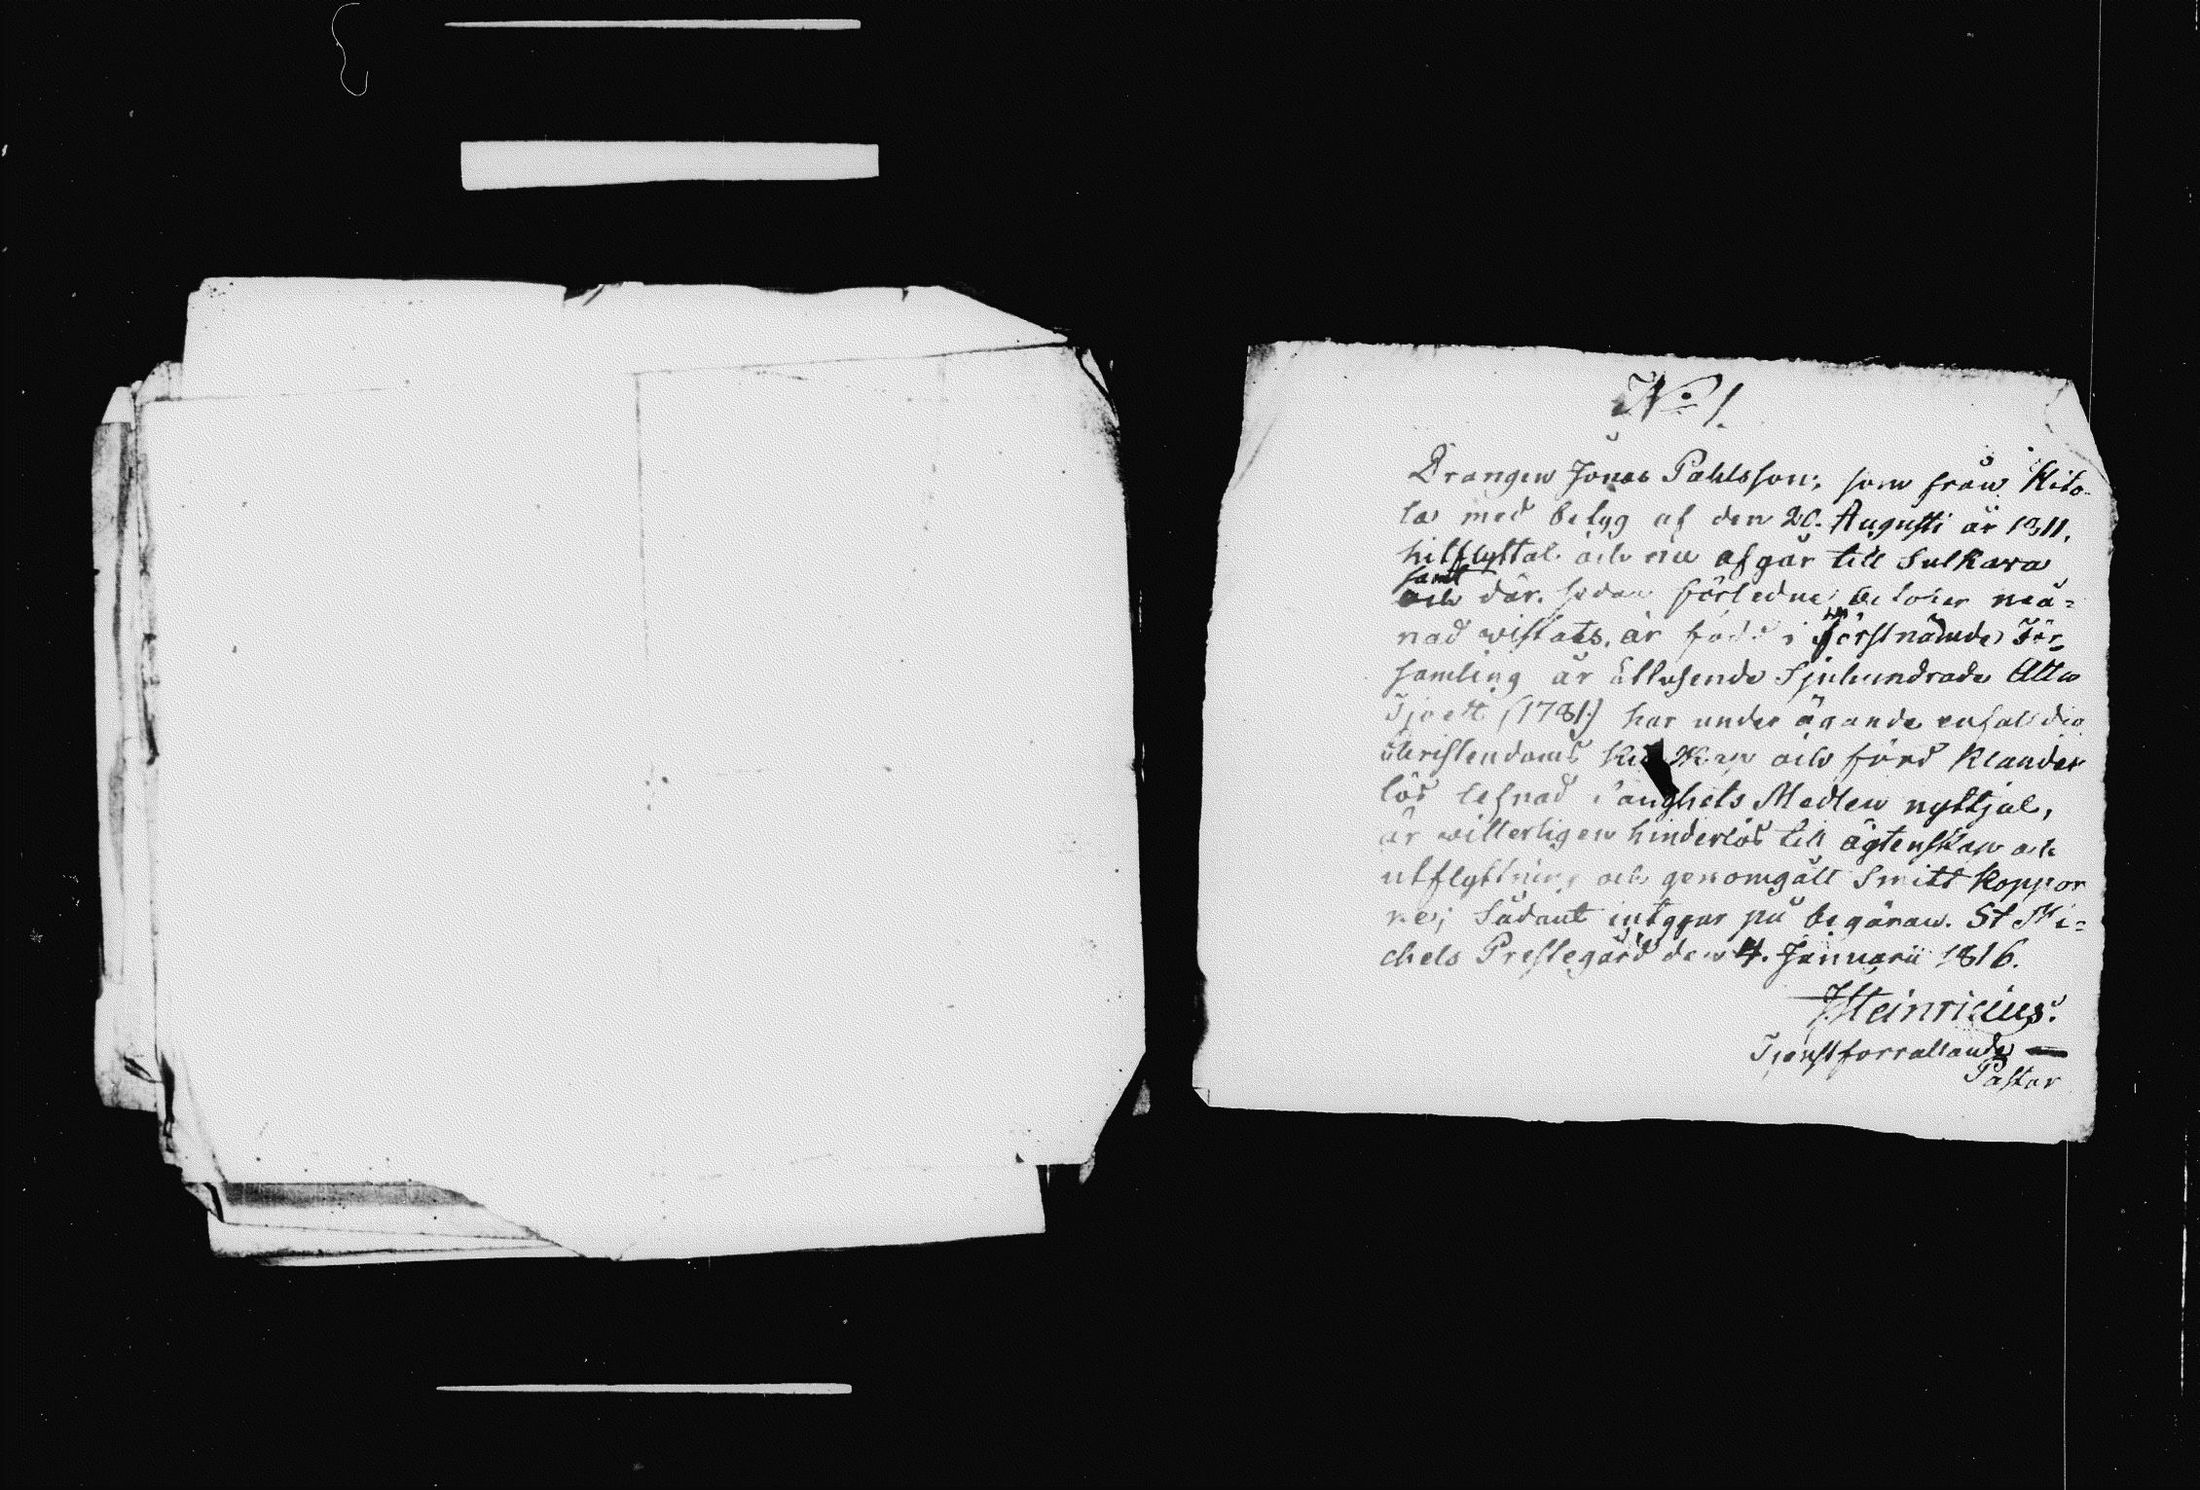 No 1.
Drangen Jonas Pahlsson, som från Hito-
la med betyg af den 20. Augusti år 1811,
hitflyttat och nu afgår till Sulkava
samt
där sedan förledne october må=
nad wistats, är född i förstnämde För=
samling år ettusende Sjuhundrade Åtta
Tjo ett (1781.) har under ägande enfaldig
christendoms och förd klander
lös lefnad Medlen nyttjat,
är witterligen hinderlös till ägtenskap och
utflyttning och genomgått Smitt koppor
ne; Sådant intygar på begäran. St Mi=
chels Prestegård den 4. Januarii 1816.
J Heinricius.
Tjenstforrattande
Pastor